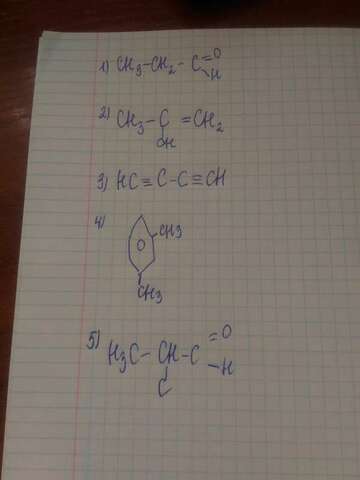 1) CH3-CH2-C=O
-H
2) CH3-C=CH2
OH
3) HC≡C-C≡CH
4) CH3
CH3
5) H3C-CH-C=O
-H
C